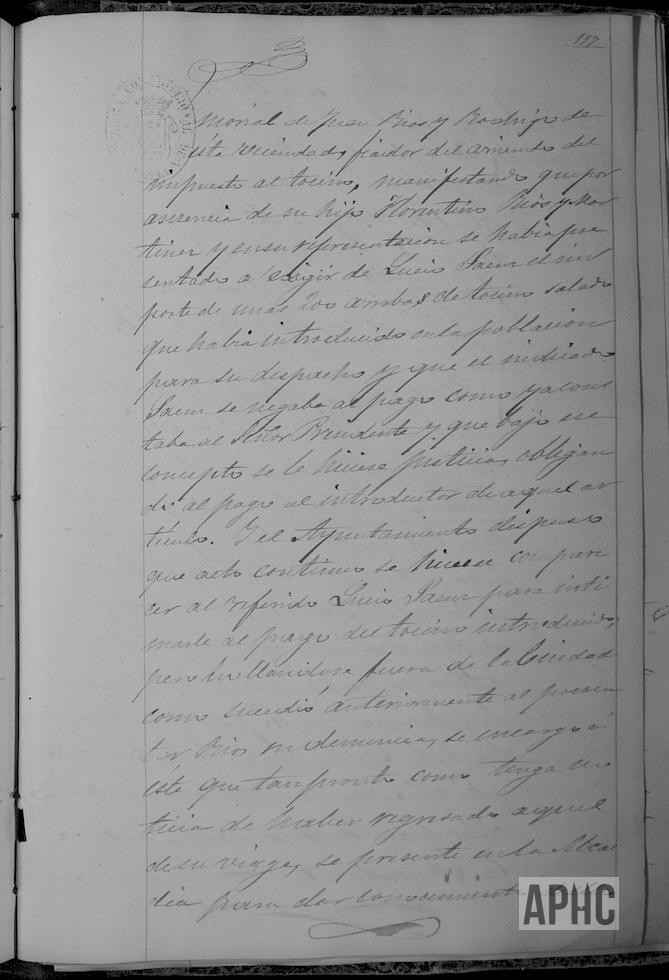 117
morial de Juan Rios y Rodrigo de
esta vecindad, fiador del arriendo del
impuesto al tocino, manifestando que por
ausencia de su hijo Florentino Rios y Mar
tinez y en su representacion se habia pre
sentado a exigir de Lucio Saenz el im
porte de unas 200 arrobas de tocino salado
que habia introducido en la poblacion
para su despacho y que el indicado
Saenz se negaba al pago como ya cons
taba al Señor Presidente y que bajo ese
concepto se le hiciese justicia, obligan
do al pago al introductor de aquel ar
tículo. Y el Ayuntamiento dispuso
que acto continuo se hiciese compare
cer al referido Lucio Saenz para inti
marle al pago del tocino introducido,
pero hallandose fuera de la Ciudad
como sucedió anteriormente al presen
tar Rios su denuncia, se encargó á
éste que tan pronto como tenga no
ticia de haber regresado aquel
de su viage, se presente en la Alcal
dia para dar conocimiento
APHC